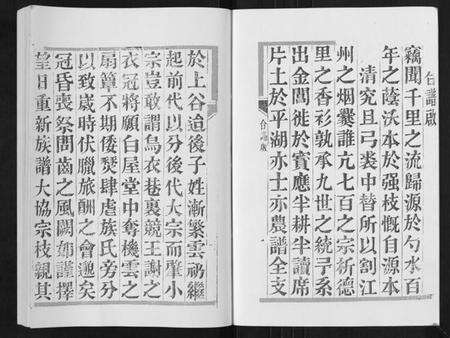 合譜啟
竊聞千里之流歸源於勺水百
年之蔭沃本於強枝慨自源本
清究且弓裘中替所以割江
州之烟爨誰亢七百之宗析德
里之香衫孰承九世之統予系
出金閶徙於寳應半耕半讀席
片土於平湖亦士亦農譜全支
合譜啟
於上谷追後子姓漸繁雲礽繼
起前代以分後代大宗而肇小
宗豈敢謂烏衣巷裏競王謝之
衣冠將願白屋堂中奪機雲之
扇簟不期倭燹肆虐族氏旁分
以致歲時伏臘旅酬之會邈矣
冠昏喪祭間齒之風闕如謹擇
望日重新族譜大協宗枝親其